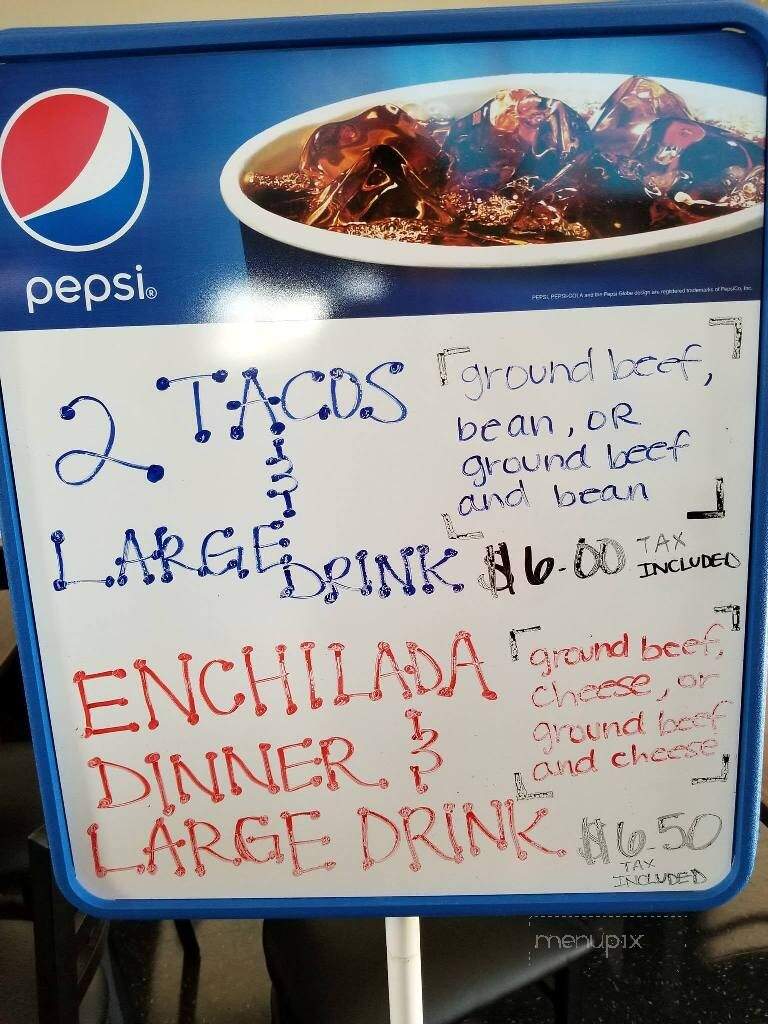 pepsi®
PEPSI, PEPSI-COLA and the Pepsi Globe design are registered trademarks of PepsiCo, Inc.
2 TACOS
&
LARGE DRINK
[ground beef,
bean, OR
ground beef
and bean]
$6.00 TAX
INCLUDED
ENCHILADA
DINNER &
LARGE DRINK
[ground beef,
cheese, or
ground beef
and cheese]
$6.50
TAX
INCLUDED
menupix